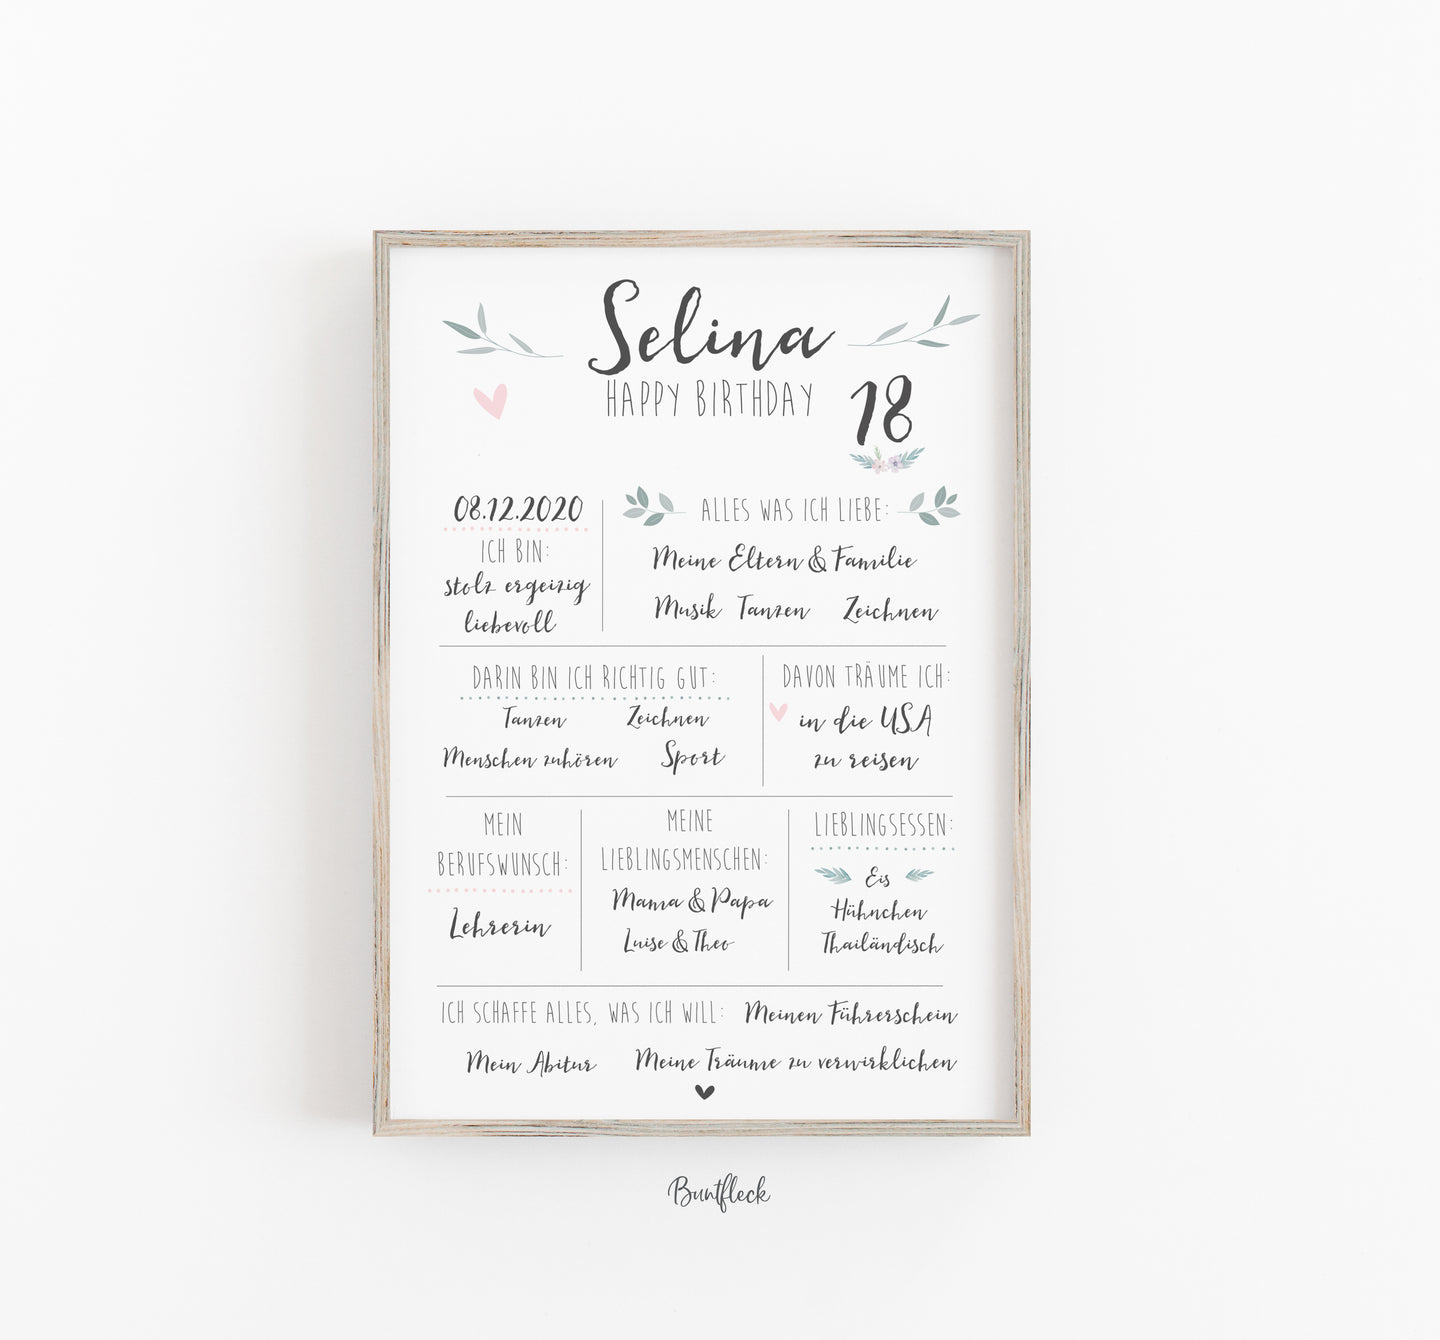 Selina
HAPPY BIRTHDAY
18
08.12.2020
ICH BIN:
stolz ergeizig
liebevoll
ALLES WAS ICH LIEBE:
Meine Eltern & Familie
Musik Tanzen Zeichnen
DARIN BIN ICH RICHTIG GUT:
Tanzen Zeichnen
Menschen zuhören Sport
DAVON TRÄUME ICH:
in die USA
zu reisen
MEIN
BERUFSWUNSCH:
Lehrerin
MEINE
LIEBLINGSMENSCHEN:
Mama & Papa
Luise & Theo
LIEBLINGSESSEN:
Eis
Hühnchen
Thailändisch
ICH SCHAFFE ALLES, WAS ICH WILL: Meinen Führerschein
Mein Abitur Meine Träume zu verwirklichen
Buntfleck